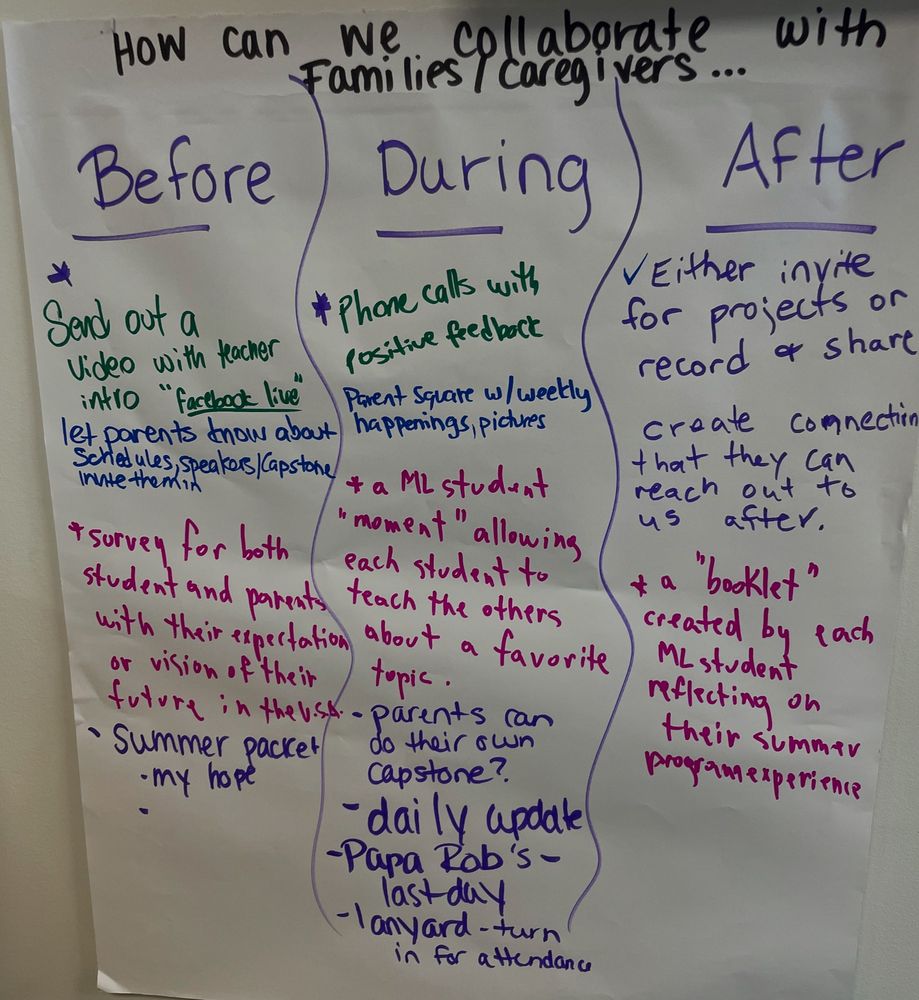 How can we collaborate with
Families/caregivers...
Before
*
Send out a
video with teacher
intro "facebook live"
let parents know about
schedules, speakers/Capstone
invite them in
* survey for both
student and parents
with their expectation
or vision of their
future in the U.S.A.
- Summer packet
- my hope
-
During
* Phone calls with
positive feedback
Parent Square w/weekly
happenings, pictures
* a ML student
"moment" allowing
each student to
teach the others
about a favorite
topic.
- parents can
do their own
capstone?
- daily update
- Papa Rob's -
last day
- lanyard - turn
in for attendance
After
✓ Either invite
for projects or
record & share
create connection
that they can
reach out to
us after.
* a "booklet"
created by each
ML student
reflecting on
their summer
program experience